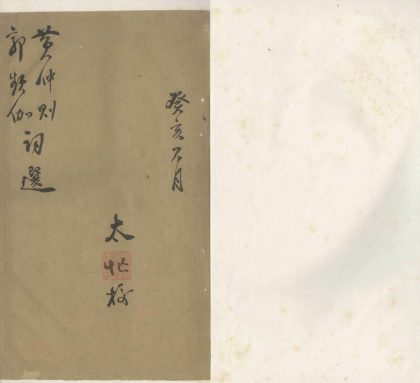 癸亥月
太忙校
黄仲則
郭頻伽
詞選